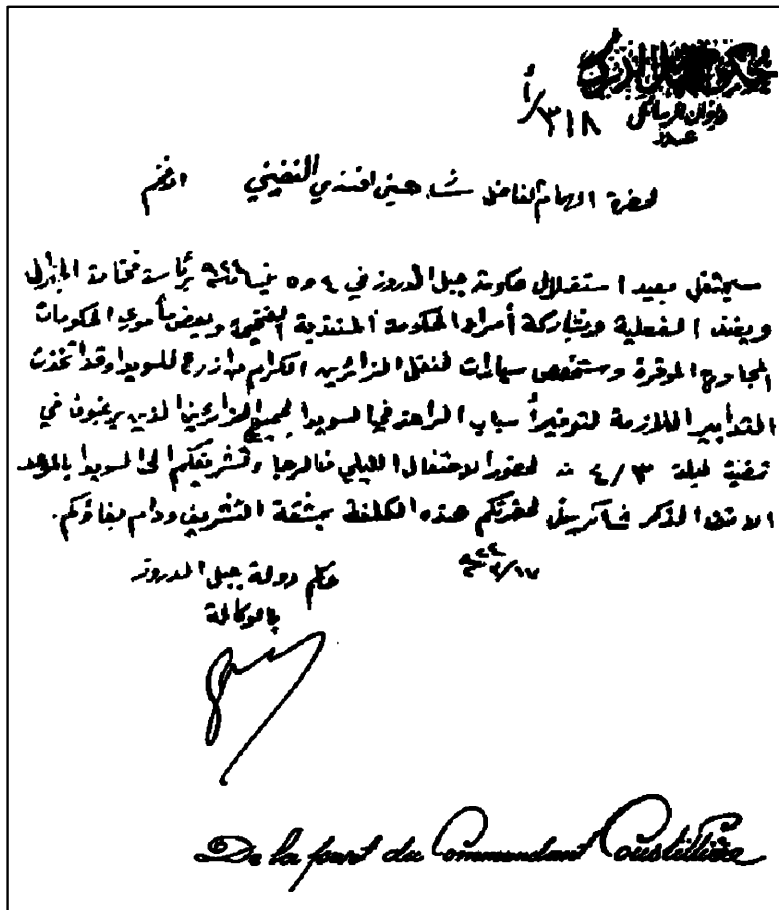 ديوان الرسائل
عدد
٣١٨/أ
لحضرة الهمام الفاضل شاهين افندي الافخم
سيحتفل بعيد استقلال حكومة جبل الدروز في ٤ و ٥ نيسان برئاسة فخامة الجنرال
ويغند الفعلية وبمشاركة أمراء الحكومة المنتدبة وبعض مأموري الحكومات
المجاورة الموقرة وستخصص سيارات لنقل الزائرين الكرام من ازرع للسويدا وقد اتخذت
التدابير اللازمة لتوفير أسباب الراحة في السويدا لجميع الزائرين الذين يرغبون في
تمضية ليلة ٤/٣ منه لحضور الاحتفال الليلي فالرجا وتشريفكم الى السويدا بالموعد
الآنف الذكر شاكرين لحضرتكم هذه الكلفة بمشقة التشريف ودام بقاؤكم.
حاكم دولة جبل الدروز
بالوكالة
De la part du Commandant Coustillière